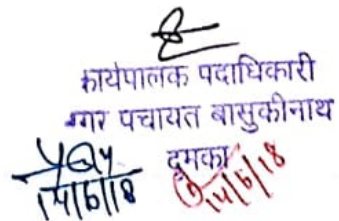 कार्यपालक पदाधिकारी
नगर पचायत बासुकीनाथ
दुमका
14/6/18
14/6/18